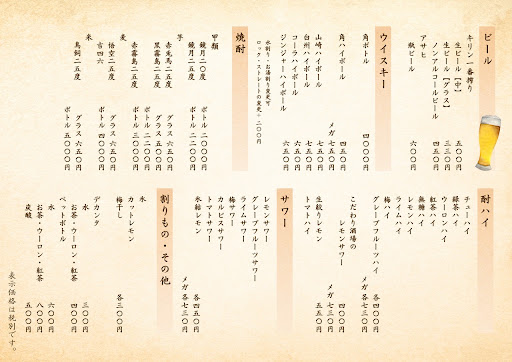 ビール
キリン一番搾り
生ビール【中】 五〇〇円
生ビール【グラス】 三三〇円
ノンアルコールビール 四五〇円
アサヒ
瓶ビール 六〇〇円
ウイスキー
角ボトル 四〇〇〇円
角ハイボール 四五〇円
メガ 七五〇円
山崎ハイボール 七五〇円
白州ハイボール 七五〇円
コーラハイボール 六五〇円
ジンジャーハイボール 六五〇円
焼酎
水割り・お湯割り変更可
ロック・ストレートの変更+二〇〇円
甲類
鏡月二〇度 ボトル 二〇〇〇円
鏡月二五度 ボトル 二二〇〇円
芋
赤兎馬二五度 グラス 六五〇円
黒霧島二五度 グラス
ボトル
赤霧島二五度 ボトル
麦
悟空二五度 グラス 六五〇円
吉四六 ボトル
米
鳥飼二五度 ボトル 五〇〇〇円
酎ハイ
チューハイ
緑茶ハイ
ウーロンハイ
紅茶ハイ
無糖ハイ
レモンハイ
ライムハイ
梅ハイ
グレープフルーツハイ
各四〇〇円
メガ 各七三〇円
こだわり酒場の
レモンサワー 四〇〇円
メガ 七三〇円
生絞りレモンハイ 五五〇円
トマトハイ
サワー
レモンサワー
グレープフルーツサワー
ライムサワー
梅サワー
カルピスサワー
トマトサワー
氷結レモン
各四五〇円
メガ 各七三〇円
割りもの・その他
氷
カットレモン
梅干し
各三〇〇円
デカンタ
水 三〇〇円
お茶・ウーロン・紅茶
ペットボトル
水 六〇〇円
お茶・ウーロン・紅茶 八〇〇円
炭酸 五〇〇円
表示価格は税別です。